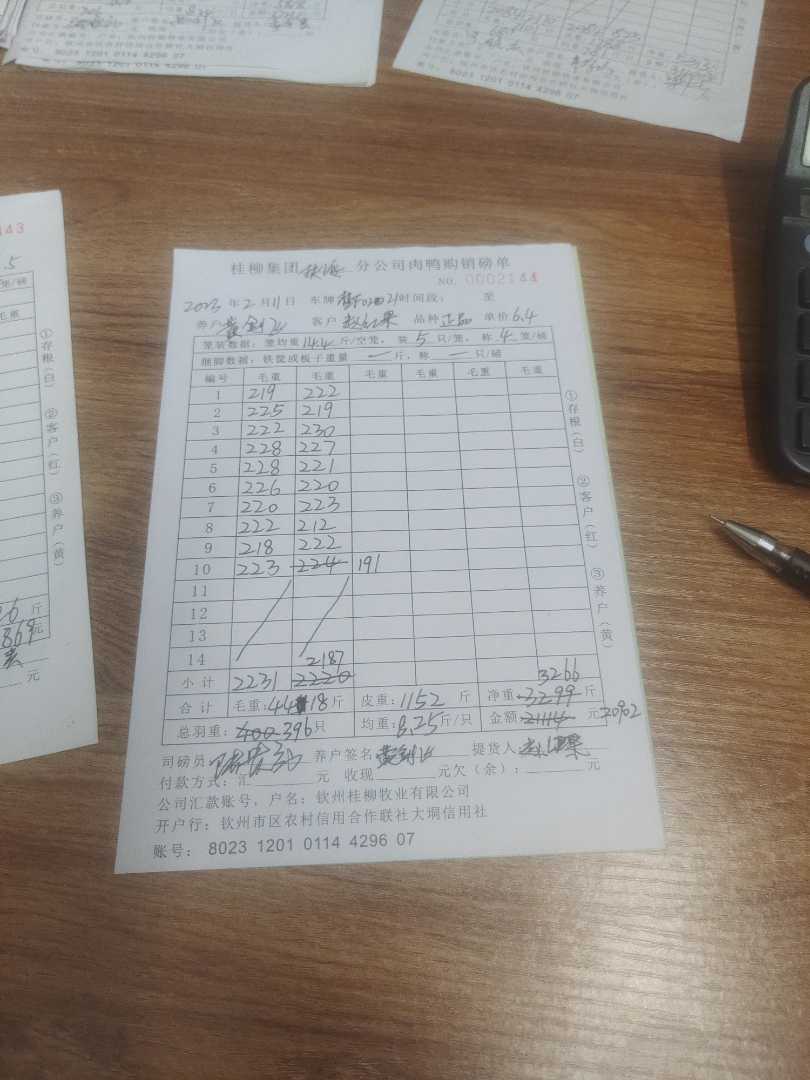 桂柳集团 分公司肉鸭购销磅单
NO. 0002144
2023年2月11日 车牌 时间段: 至
养户 客户 品种 正品 单价 6.4
笼装数据:笼均重 14.4 斤/空笼,装 5 只/笼,称 4 笼/磅
捆脚数据:铁筐或板子重量 一 斤,称 一 只/磅
编号 毛重 毛重 毛重 毛重 毛重 毛重
1 219 222
2 225 219
3 222 230
4 228 227
5 228 221
6 226 220
7 220 223
8 222 212
9 218 222
10 223 224 191
11
12
13
14
2187
小计 2231 2220 3266
合计 毛重:4418斤 皮重:1152 斤 净重:3299斤
总羽重:400 396只 均重:8.25斤/只 金额:21114 元 20902
司磅员 养户签名 提货人
付款方式:汇 元 收现 元欠(余): 元
公司汇款账号,户名:钦州桂柳牧业有限公司
开户行:钦州市区农村信用合作联社大垌信用社
账号: 8023 1201 0114 4296 07
①存根(白) ②客户(红) ③养户(黄)
①存根(白) ②客户(红) ③养户(黄)
143
毛重
斤
元
元
8023 1201 0114 4296 07
8023 1201 0114 4296 07